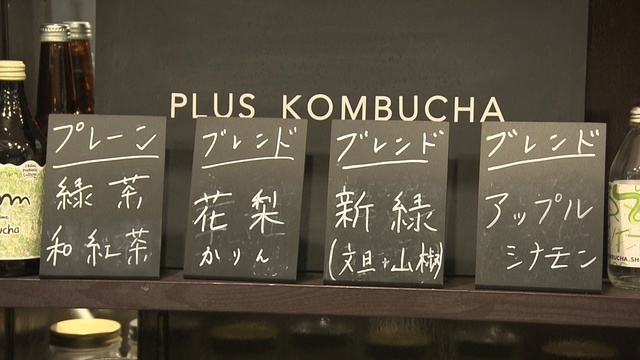 PLUS KOMBUCHA
プレーン
緑茶
和紅茶
ブレンド
花梨
かりん
ブレンド
新緑
(文旦+山椒)
ブレンド
アップル
シナモン